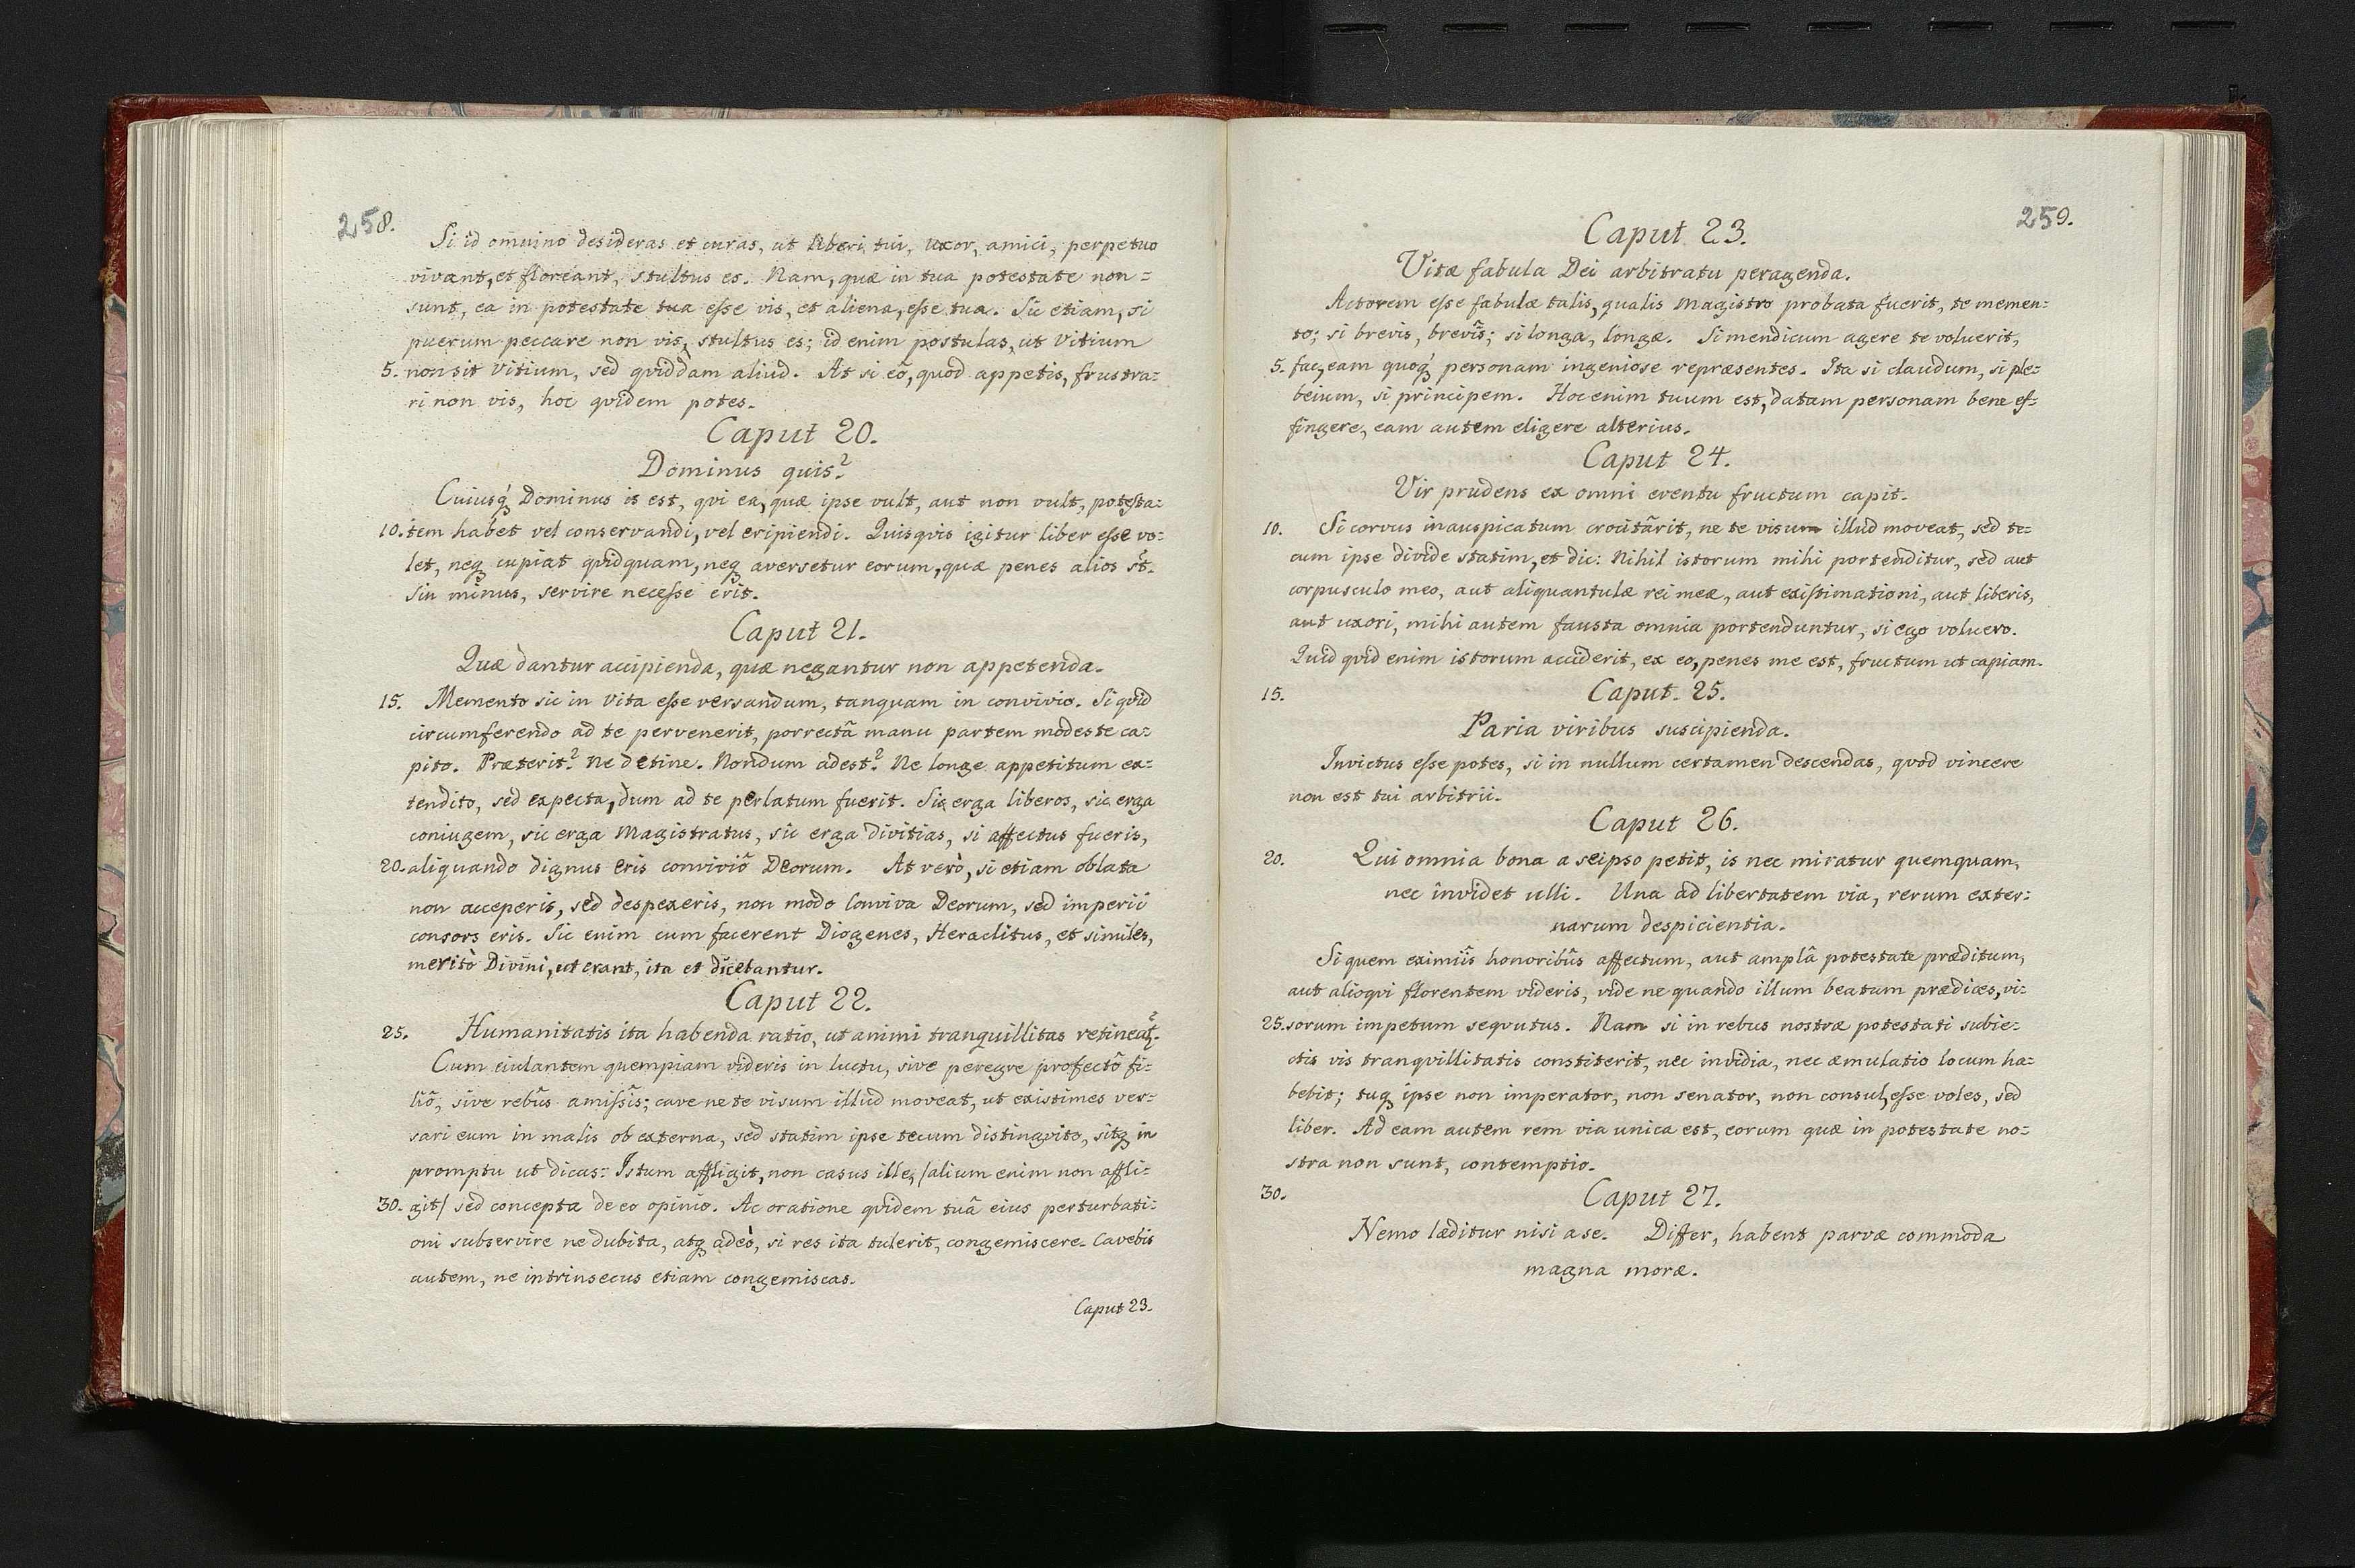 258.
Si id omnino desideras et curas, ut liberi tui, uxor, amici, perpetuo
vivant, et floreant, stultus es. Nam, quæ in tua potestate non=
sunt, ea in potestate tua esse vis, et aliena, esse tua. Sic etiam, si
puerum peccare non vis, stultus es; id enim postulas, ut Vitium
5. non sit Vitium, sed quiddam aliud. At si eô, quod appetis, frustra=
ri non vis, hoc quidem potes.
Caput 20.
Dominus quis?
Cuiusq́ꝫ Dominus is est, qvi ea, quæ ipse vult, aut non vult, potesta=
10. tem habet vel conservandi, vel eripiendi. Quisqvis igitur liber esse vo=
let, neqꝫ cupiat qvidquam, neqꝫ aversetur eorum, quæ penes alios st̃.
Sin minus, servire necesse erit.
Caput 21.
Quæ dantur accipienda, quæ negantur non appetenda.
15. Memento sic in Vita esse versandum, tanquam in convivio. Si qvid
circumferendo ad te pervenerit, porrectâ manu partem modeste ca=
pito. Præterit? Ne detine. Nondum adest? Ne longe appetitum ex=
tendito, sed expecta, dum ad te perlatum fuerit. Sic erga liberos, sic erga
coniugem, sic erga Magistratus, sic erga divitias, si affectus fueris,
20. aliquando dignus eris conviviô Deorum. At verò, si etiam oblata
non acceperis, sed despexeris, non modo Conviva Deorum, sed imperii
consors eris. Sic enim cum facerent Diogenes, Heraclitus, et similes,
meritò Divini, ut erant, ita et dicebantur.
Caput 22.
25. Humanitatis ita habenda ratio, ut animi tranquillitas retineat̃.
Cum eiulantem quempiam videris in luctu, sive peregre profectô fi=
liô, sive rebûs amissîs; cave ne te visum illud moveat, ut existimes ver=
sari eum in malis ob externa, sed statim ipse tecum distingvito, sitqꝫ in
promptu ut dicas: Istum affligit, non casus ille, /alium enim non affli=
30. git/ sed concepta de eo opinio. Ac oratione qvidem tuâ eius perturbati=
oni subservire ne dubita, atqꝫ adeò, si res ita tulerit, congemiscere. Cavebis
autem, ne intrinsecus etiam congemiscas.
Caput 23.
259.
Caput 23.
Vitæ fabula Dei arbitratu peragenda.
Actorem esse fabulæ talis, qualis Magistro probata fuerit, te memen=
to; si brevis, brevîs; si longa, longæ. Si mendicum agere te voluerit,
5. fac, eam quoq́ꝫ personam ingeniose repræsentes. Ita si claudum, si ple=
beium, si principem. Hoc enim tuum est, datam personam bene ef=
fingere, eam autem eligere alterius.
Caput 24.
Vir prudens ex omni eventu fructum capit.
10. Si corvus inauspicatum crocitârit, ne te visum illud moveat, sed te=
cum ipse divide statim, et dic: Nihil istorum mihi portenditur, sed aut
corpusculo meo, aut aliquantulæ rei meæ, aut existimationi, aut liberis,
aut uxori, mihi autem fausta omnia portenduntur, si ego voluero.
Quid qvid enim istorum acciderit, ex eo, penes me est, fructum ut capiam.
15. Caput. 25.
Paria viribus suscipienda.
Invictus esse potes, si in nullum certamen descendas, quod vincere
non est tui arbitrii.
Caput 26.
20. Qui omnia bona a seipso petit, is nec miratur quemquam,
nec invidet ulli. Una ad libertatem via, rerum exter=
narum despicientia.
Si quem eximiîs honoribûs affectum, aut amplâ potestate præditum,
aut alioqvi florentem videris, vide ne quando illum beatum prædices, vi=
25. sorum impetum seqvutus. Nam si in rebus nostræ potestati subie=
ctis vis tranqvillitatis constiterit, nec invidia, nec æmulatio locum ha=
bebit; tuqꝫ ipse non imperator, non senator, non consul, esse voles, sed
liber. Ad eam autem rem via unica est, eorum quæ in potestate no=
stra non sunt, contemptio.
30. Caput 27.
Nemo læditur nisi a se. Differ, habent parvæ commoda
magna moræ.